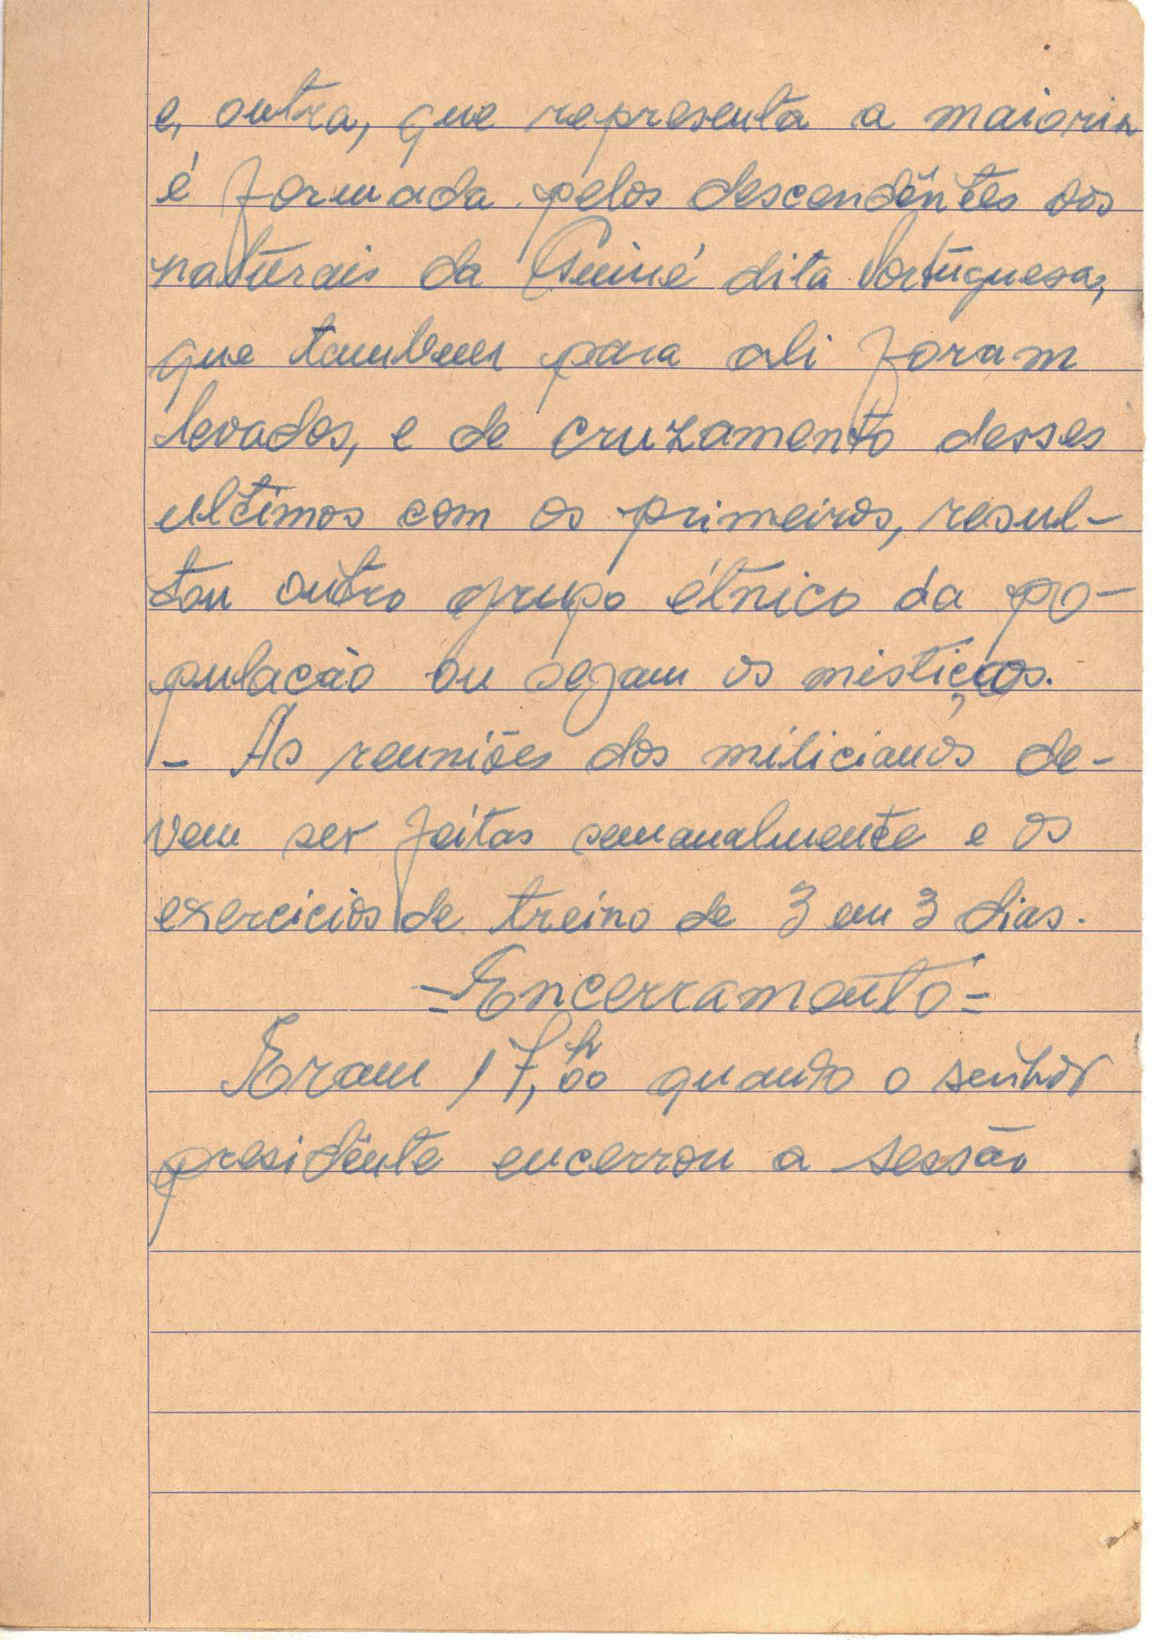 e, outra, que representa a maioria
é formada pelos descendêntes dos
naturais da Guiné dita Portuguesa,
que tambem para ali foram
levados, e de cruzamento desses
ultimos com os primeiros, resul-
tou outro grupo étnico da po-
pulação ou sejam os mistiços.
- As reuniões dos milicianos de-
vem ser feitas semanalmente e os
exercicios de treino de 3 em 3 dias.
=Encerramento=
Eram 17,00 h quando o senhor
presidênte encerrou a sessão